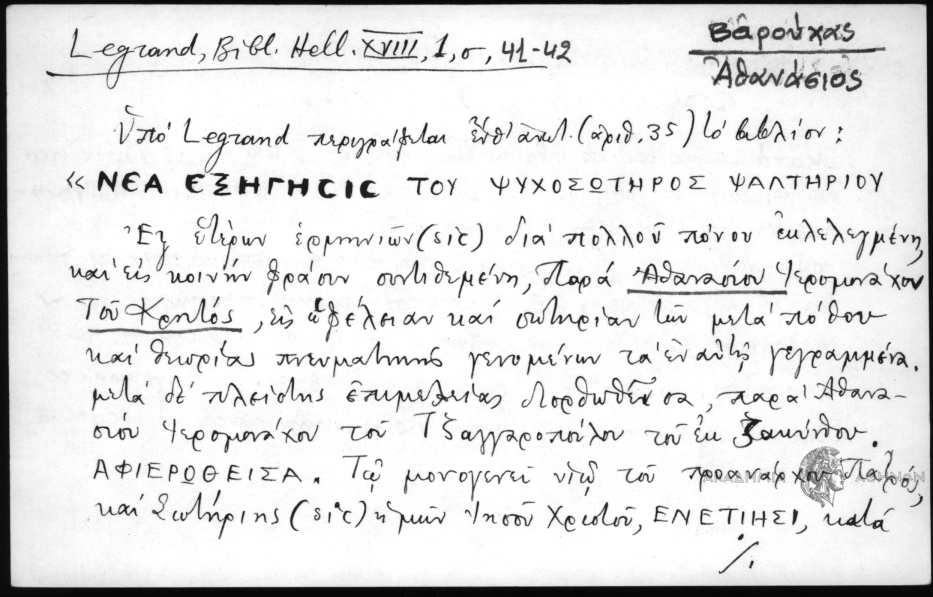 Legrand, Bibl. Hell. XVIII, 1, σ, 41-42
Βαρούχας
Ἀθανάσιος
Ὑπό Legrand περιγράφεται (ἀριθ. 35) τό βιβλίον:
«ΝΕΑ ΕΞΗΓΗCΙC ΤΟΥ ΨΥΧΟΣΩΤΗΡΟΣ ΨΑΛΤΗΡΙΟΥ
Ἐξ ἑτέρων ἑρμηνιῶν (sic) διά πολλοῦ πόνου ἐκλελεγμένη,
καί εἰς κοινήν φράσιν συντιθεμένη, Παρά Ἀθανασίου Ἱερομονάχου
Τοῦ Κρητός, εἰς ὠφέλειαν καί σωτηρίαν τῶν μετά πόθου
καί θεωρίας πνευματικῆς γενομένων τά ἐν αὐτῇ γεγραμμένα.
μετά δέ πλείστης ἐπιμελείας διορθωθεῖσα, παρά Ἀθανα-
σίου Ἱερομονάχου τοῦ Τζαγγαροπούλου τοῦ ἐκ Ζακύνθου.
ΑΦΙΕΡΩΘΕΙΣΑ. Τῷ μονογενεῖ υἱῷ τοῦ προανάρχου Πατρός,
καί Σωτήρης (sic) ἡμῶν Ἰησοῦ Χριστοῦ, ΕΝΕΤΙΗΣΙ, κατά
./.
ΑΚΑΔΗΜΙΑ ΑΘΗΝΩΝ